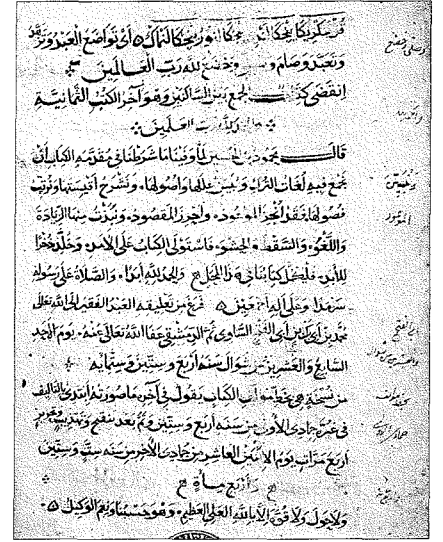 اى تواضع العبد
وتعبد وصام وخشع لله رب العالمين
انقضى كتاب الجمع بين الساكنين وهو آخر الكتب الثمانية
والحمد لله رب العلمين
قال محمود بن الحسين لما وفينا ما شرطنا فى مقدمة الكتاب أن
نجمع فيه لغات الترك ونبين عللها واصولها ونشرح اقيستها ونرتب
فصولها فقد أنجز الموعود وأحرز المقصود ونبذت منها الزيادة
واللغو والسقط والحشو فاستولى الكتاب على الامد وخلد ذخرا
للابد فلنختم كتابنا فى هذا المحل والحمد لله ابدا والصلاة على رسوله
سرمدا وعلى آله اجمعين فرغ من تعليقه العبد الفقير الى الله تعالى
محمد بن أبى بكر بن أبى الفتح الساوى ثم الدمشقى عفا الله تعالى عنه يوم الاحد
السابع والعشرين من شوال سنه اربع وستين وستمايه
من نسخة هى بخط مولف الكتاب يقول فى آخره ما صورته ابتدئ بالتاليف
فى غرة جمادى الأول من سنه اربع وستين وتم بعد تنقيح وتهذيب وتحرير
اربع مرات يوم الاثنين العاشر من جمادى الآخر من سنه ست وستين
واربع مائة
ولا حول ولا قوة الا بالله العلى العظيم وهو حسبنا ونعم الوكيل